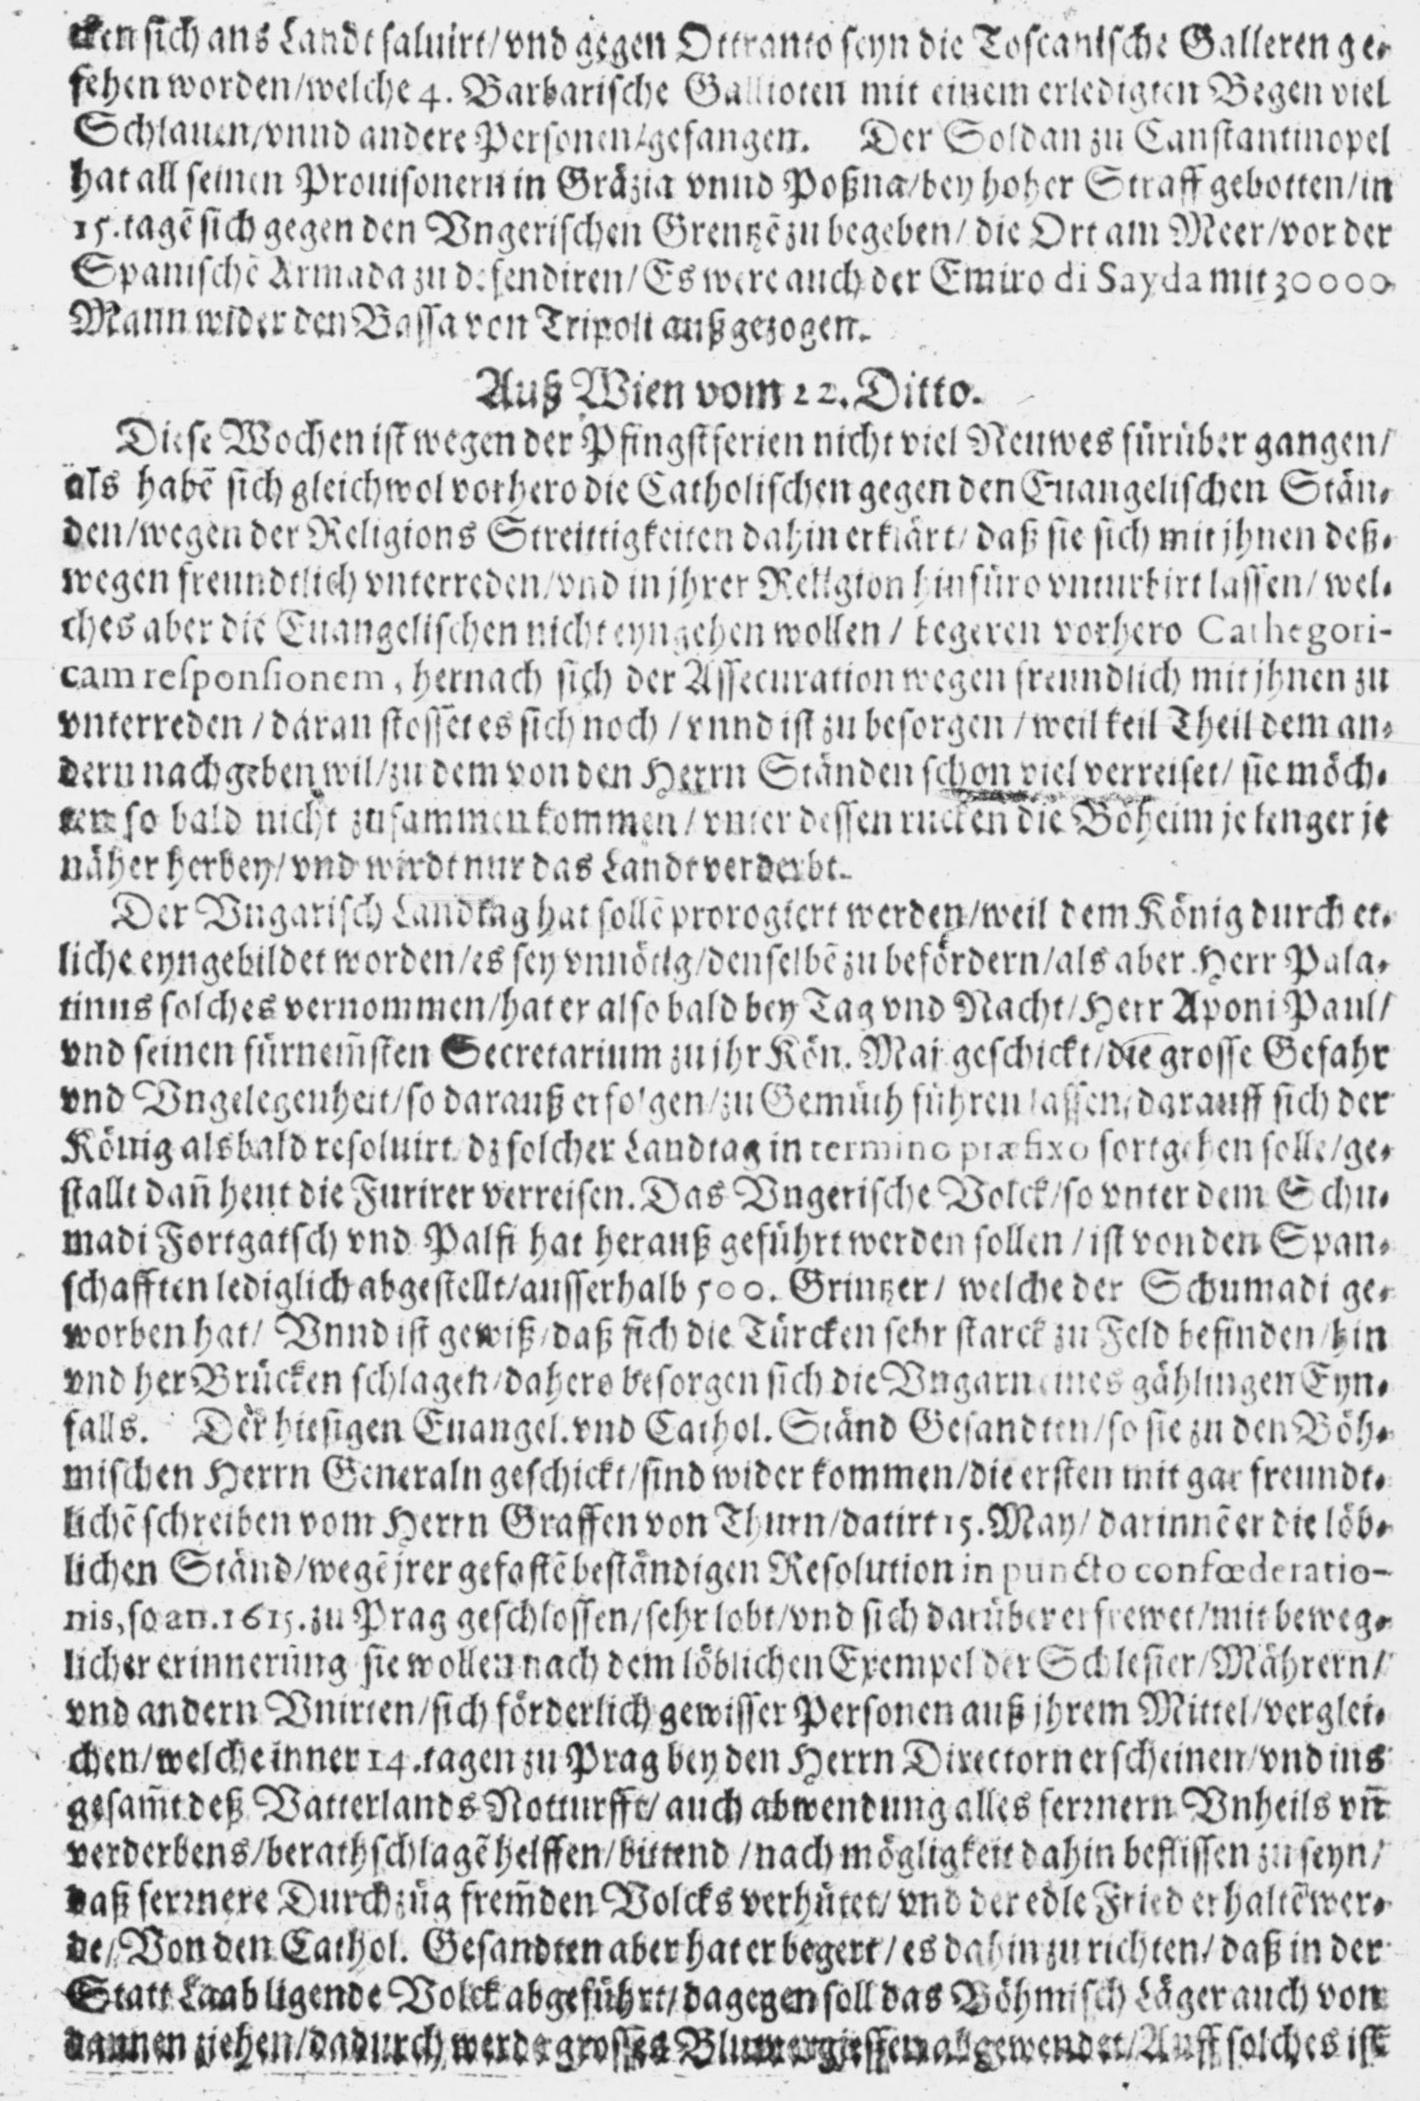 cken sich ans Landt saluirt/ vnd gegen Ottranto seyn die Toscanische Galleren ge-
sehen worden/welche 4. Barbarische Gallioten mit einem erledigten Begen viel
Schlauen/vnnd andere Personen/gefangen. Der Soldan zu Canstantinopel
hat all seinen Prouisonern in Gräzia vnnd Poßna/bey hoher Straff gebotten/in
15.tagẽ sich gegen den Vngerischen Grentzẽ zu begeben/ die Ort am Meer/vor der
Spanischẽ Armada zu defendiren/ Es were auch der Emiro di Sayda mit 30000
Mann wider den Bassa von Tripoli außgezogen.
Auß Wien vom 22. Ditto.
Diese Wochen ist wegen der Pfingstferien nicht viel Neuwes fürüber gangen/
als habẽ sich gleichwol vorhero die Catholischen gegen den Euangelischen Stän-
den/wegen der Religions Streittigkeiten dahin erklärt/ daß sie sich mit jhnen deß-
wegen freundtlich vnterreden/vnd in jhrer Religion hinfüro vnturbirt lassen/ wel-
ches aber die Euangelischen nicht eyngehen wollen/ begeren vorhero Cathegori-
cam responsionem, hernach sich der Assecuration wegen freundlich mit jhnen zu
vnterreden/ daran stosset es sich noch/ vnnd ist zu besorgen/ weil keil Theil dem an-
dern nachgeben wil/zu dem von den Herrn Ständen schon viel verreiset/ sie möch-
ten so bald nicht zusammen kommen/ vnter dessen rucken die Böheim je lenger je
näher herbey/ vnd wirdt nur das Landt verderbt.
Der Vngarisch Landtag hat sollẽ prorogiert werden/weil dem König durch et-
liche eyngebildet worden/es sey vnnötig/denselbẽ zu befördern/als aber Herr Pala-
tinus solches vernommen/hat er also bald bey Tag vnd Nacht/Herr Aponi Paul/
vnd seinen fürnem̃sten Secretarium zu jhr Kön. Maj geschickt/die grosse Gefahr
vnd Vngelegenheit/so darauß erfolgen/zu Gemüth führen lassen/darauff sich der
König alsbald resoluirt dz solcher Landtag in termino præfixo fortgehen solle/ge-
stallt dañ heut die Furirer verreisen. Das Vngerische Volck/so vnter dem Schu-
madi Fortgatsch vnd Palfi hat herauß geführt werden sollen/ ist von den Span-
schafften lediglich abgestellt/ausserhalb 500. Grintzer/ welche der Schumadi ge-
worben hat/ Vnnd ist gewiß/daß sich die Türcken sehr starck zu Feld befinden/hin
vnd her Brücken schlagen/dahero besorgen sich die Vngarn eines gählingen Eyn-
falls. Der hiesigen Euangel. vnd Cathol. Ständ Gesandten/so sie zu den Böh-
mischen Herrn Generaln geschickt/sind wider kommen/die ersten mit gar freundt-
lichẽ schreiben vom Herrn Graffen von Thurn/datirt 15. May/ darinnẽ er die löb-
lichen Ständ/wegẽ jrer gefastẽ beständigen Resolution in puncto confœderatio-
nis, so an. 1615. zu Prag geschlossen/sehr lobt/vnd sich darüber erfrewet/mit beweg-
licher erinnerung sie wollen nach dem löblichen Exempel der Schlesier/Mährern/
vnd andern Vnirten/sich förderlich gewisser Personen auß jhrem Mittel/verglei-
chen/welche inner 14.tagen zu Prag bey den Herrn Directorn erscheinen/vnd ins
gesam̃t deß Vatterlands Notturfft/ auch abwendung alles ferrnern Vnheils vñ
verderbens/berathschlagẽ helffen/bittend/nach mögligkeit dahin beflissen zu seyn/
daß ferrnere Durchzüg frem̃den Volcks verhütet/ vnd der edle Fried erhaltẽ wer-
de/ Von den Cathol. Gesandten aber hat er begert/ es dahin zu richten/ daß in der
Statt Laab ligende Volck abgeführt/dagegen soll das Böhmisch Läger auch von
dannen ziehen/dadurch werde grosses Blutvergiessen abgewendet/Auff solches ist